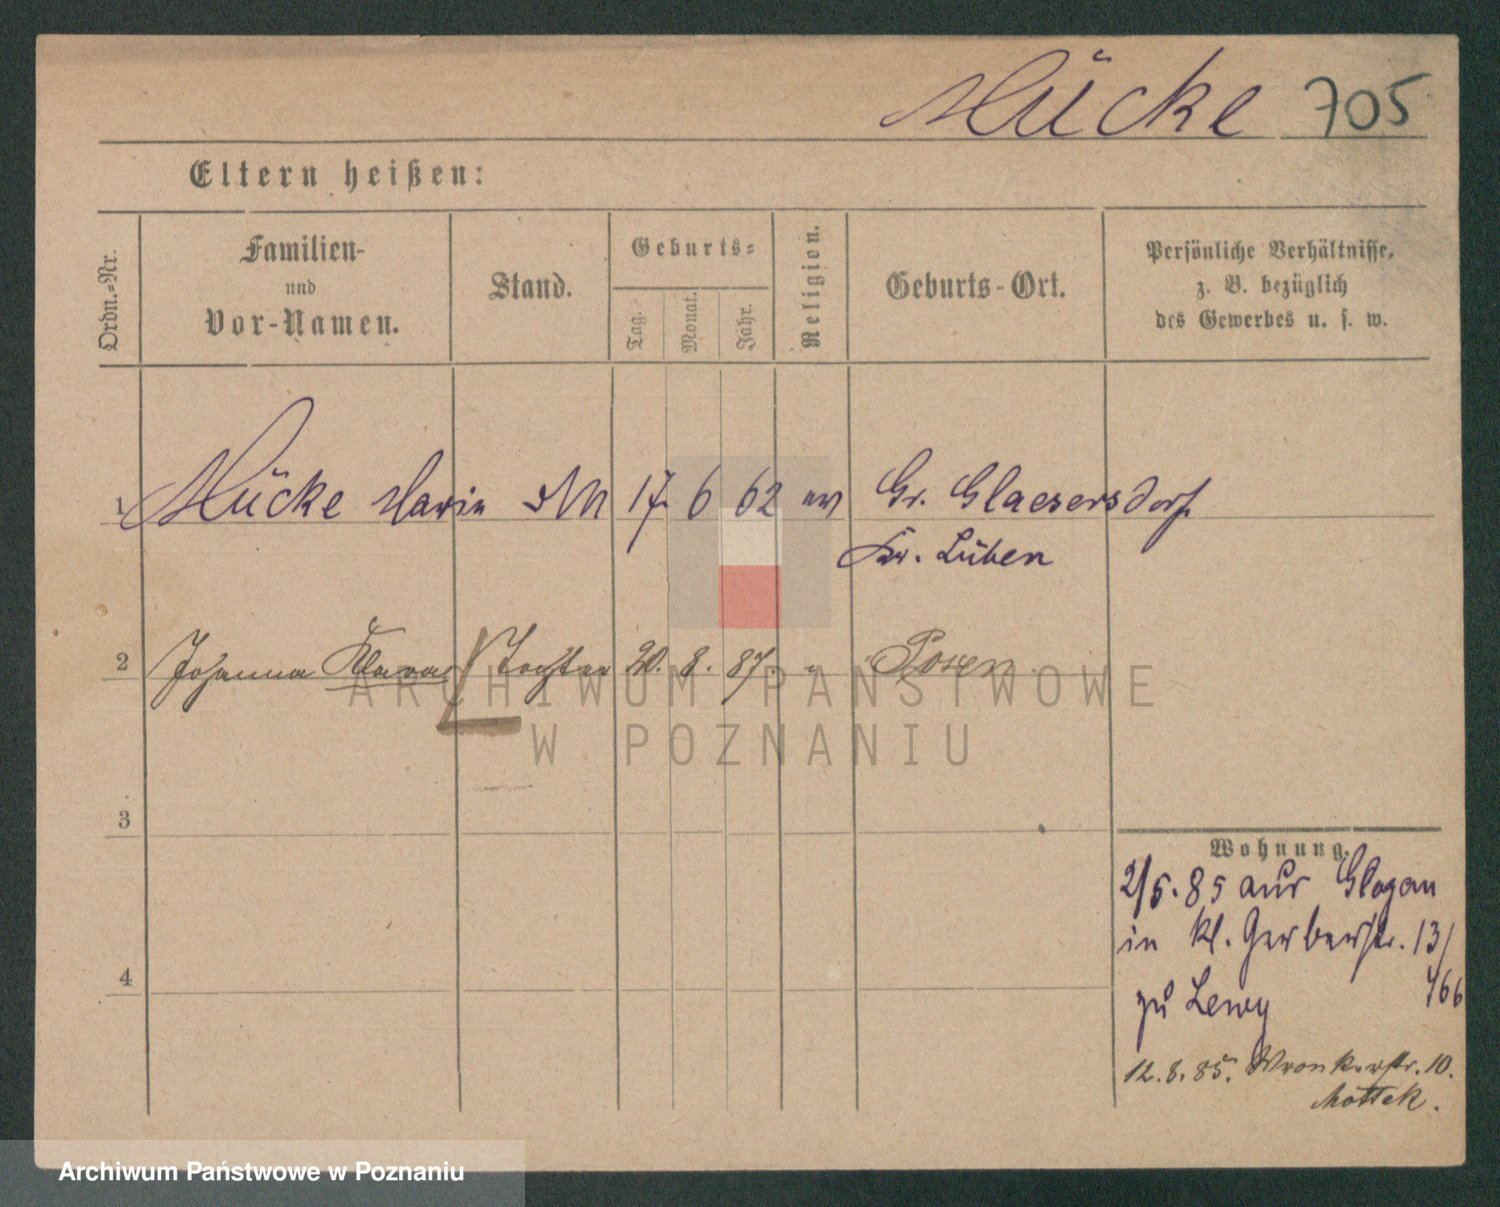 Mücke 705
Eltern heißen:
Ordn.-Nr.
Familien-
und
Vor-Namen.
Stand.
Geburts-
Tag.
Monat.
Jahr.
Religion.
Geburts-Ort.
Persönliche Verhältnisse,
z. B. bezüglich
des Gewerbes u. s. w.
1 Mücke Marie 17. 6 62 ev Gr. Glaesersdorf
Kr. Lüben
2 Johanna Klara Tochter 20. 8. 87. " Posen
3
4
Wohnung.
2/5.85 aus Glogau
in kl. Gerberstr. 13/
zu Lewy 466
12.8.85. Wronkerstr. 10.
Mottek.
ARCHIWUM PAŃSTWOWE
W POZNANIU
Archiwum Państwowe w Poznaniu